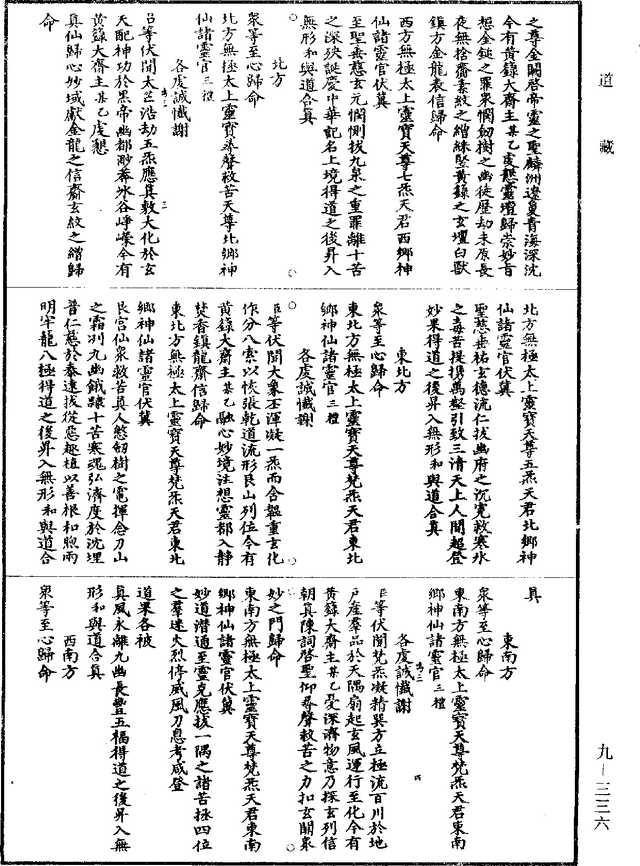 道藏
之尊金闕啓帝靈之聖麟洲遼夐青海深沈
今有黃籙大齋主某乙虔懇靈壇歸崇妙旨
想金鎚之罪眾憫劒樹之幽徒歷劫未原長
夜無捨齋素紋之繒練堅黃籙之玄壇白獸
鎮方金龍表信歸命
西方無極太上靈寶天尊七炁天君西鄉神
仙諸靈官伏冀
至聖垂慈玄元憫惻拔九泉之重罪離十苦
之深殃誕慶中華記名上境得道之後昇入
無形和與道合真
北方
眾等至心歸命
北方無極太上靈寶尋聲救苦天尊北鄉神
仙諸靈官三禮
各虔誠懺謝
臣等伏聞太茫浩劫五炁應真敷大化於玄
天配神功於黑帝幽都渺莽氷谷崢嶸今有
黃籙大齋主某乙虔懇
真仙歸心妙域獻金龍之信齋玄紋之繒歸
命
北方無極太上靈寶天尊五炁天君北鄉神
仙諸靈官伏冀
聖慈垂祐玄德流仁拔幽府之沉冤救寒氷
之毒苦提携萬墼引致三清天上人間超登
妙果得道之後昇入無形和與道合真
東北方
眾等至心歸命
東北方無極太上靈寶天尊梵炁天君東北
鄉神仙諸靈官三禮
各虔誠懺謝
臣等伏聞大象丕渾凝一炁而含韞重玄化
作分八索以恢張乾道流形艮山列位今有
黃籙大齋主某乙融心妙境注想靈都入靜
焚香鎮龍齋信歸命
東北方無極太上靈寶天尊梵炁天君東北
鄉神仙諸靈官伏冀
艮宮仙眾救苦真人愍劒樹之電揮念刀山
之霜刋九幽餓隸十苦寒魂弘濟度於沈埋
普仁慈於泰遠拔從惡趣植以善根和煦雨
明牢龍八極得道之後昇入無形和與道合
真
東南方
眾等至心歸命
東南方無極太上靈寶天尊梵炁天君東南
鄉神仙諸靈官三禮
各虔誠懺謝
臣等伏聞梵炁凝精巽方立極流百川於地
戶產羣品於天隅扇起玄風運行至化今有
黃籙大齋主某乙愛深濟物意乃探玄列信
朝真陳詞啓聖仰尋聲救苦之力扣玄關眾
妙之門歸命
東南方無極太上靈寶天尊梵炁天君東南
鄉神仙諸靈官伏冀
妙道潛通至靈克應拔一隅之諸苦拯四位
之羣迷火烈停威風刀息考咸登
道果各被
真風永離九幽長豐五福得道之後昇入無
形和與道合真
西南方
眾等至心歸命
九—三三六